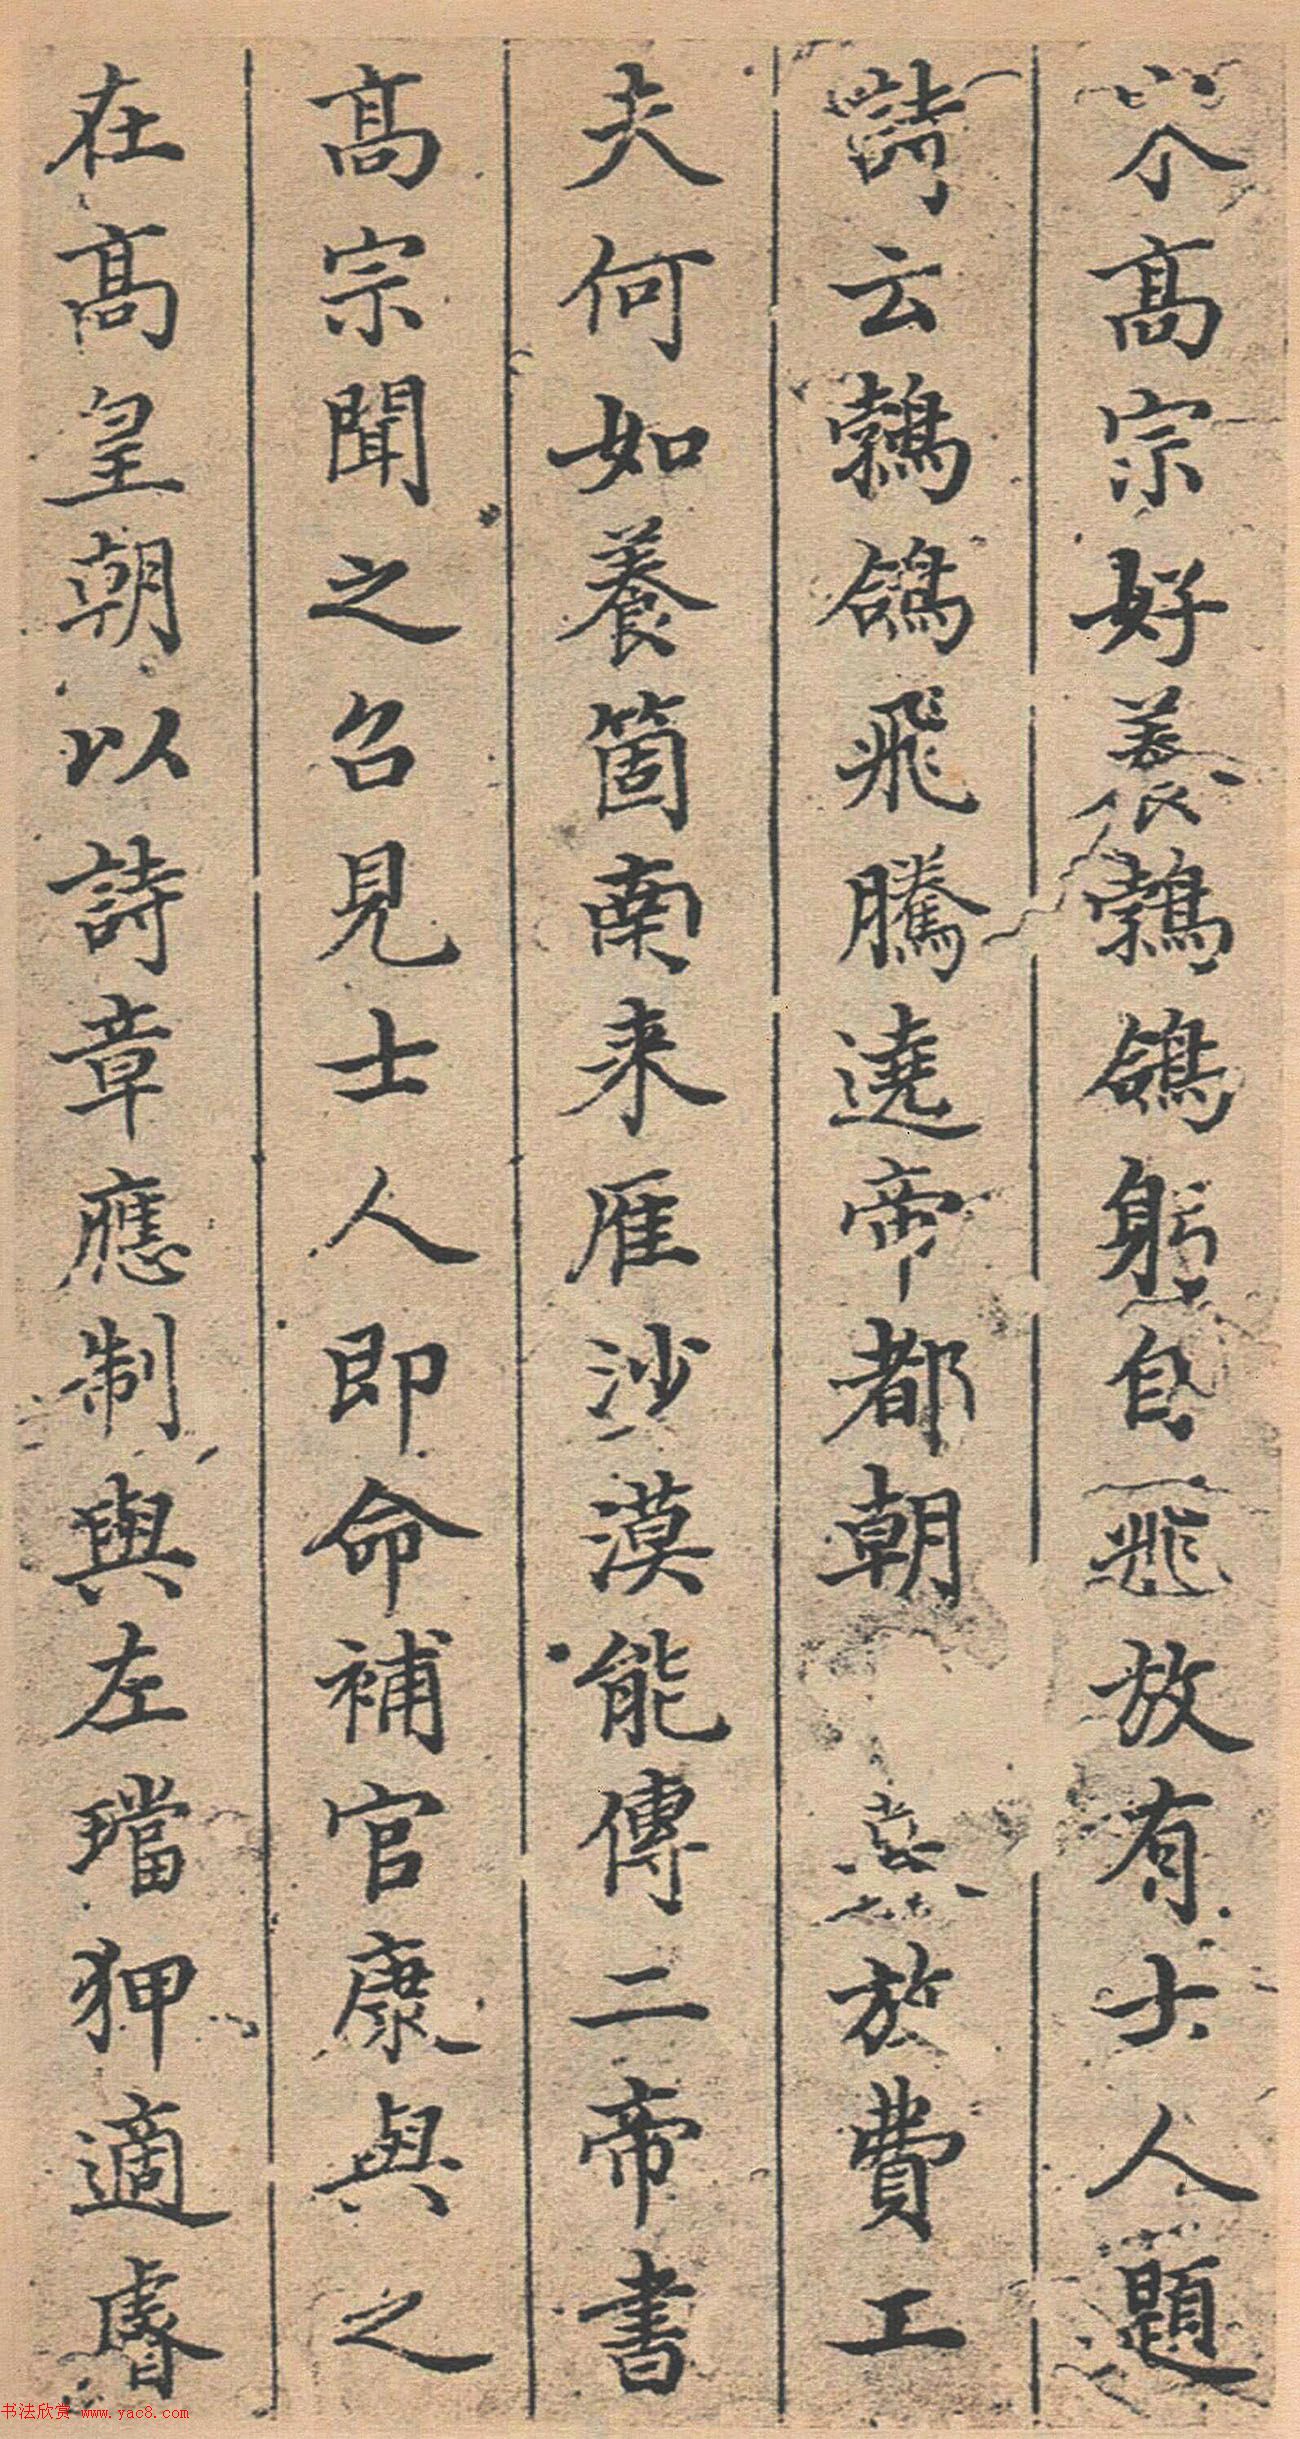 高宗好養鵓鴿躬自飛放有士人題
詩云鵓鴿飛騰遶帝都朝暮放費工
夫何如養箇南来雁沙漠能傳二帝書
髙宗聞之召見士人即命補官康與之
在髙皇朝以詩章應制與左璫狎適睿
书法欣赏 www.yac8.com